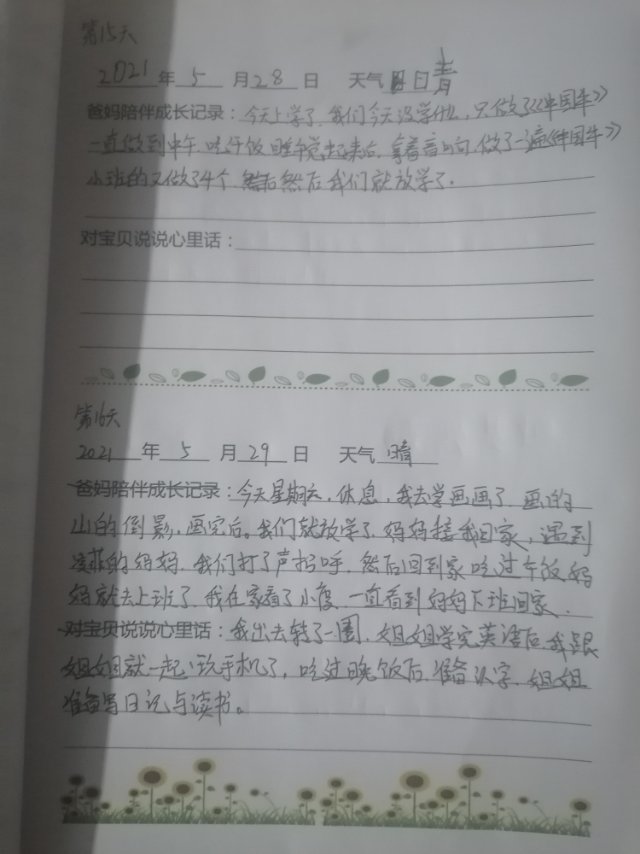 第15天
2021 年 5 月 28 日 天气 晴
爸妈陪伴成长记录：今天上学了，我们今天没学什么，只做了《中国年》
一直做到中午，吃午饭，睡午觉，起来后，拿着音响，做了一遍《中国年》
小班的又做了4个，然后我们就放学了。
对宝贝说说心里话：
第16天
2021 年 5 月 29 日 天气 晴
爸妈陪伴成长记录：今天星期六，休息，我去学画画了，画的
山的倒影，画完后。我们就放学了，妈妈接我回家，遇到
的妈妈，我们打了声招呼，然后回到家，吃过午饭，妈
妈就去上班了，我在家看了小度，一直看到妈妈下班回家，
对宝贝说说心里话：我出去转了一圈，姐姐学完英语后，我跟
姐姐就一起玩手机了，吃过晚饭后，准备认字，姐姐
准备写日记与读书。